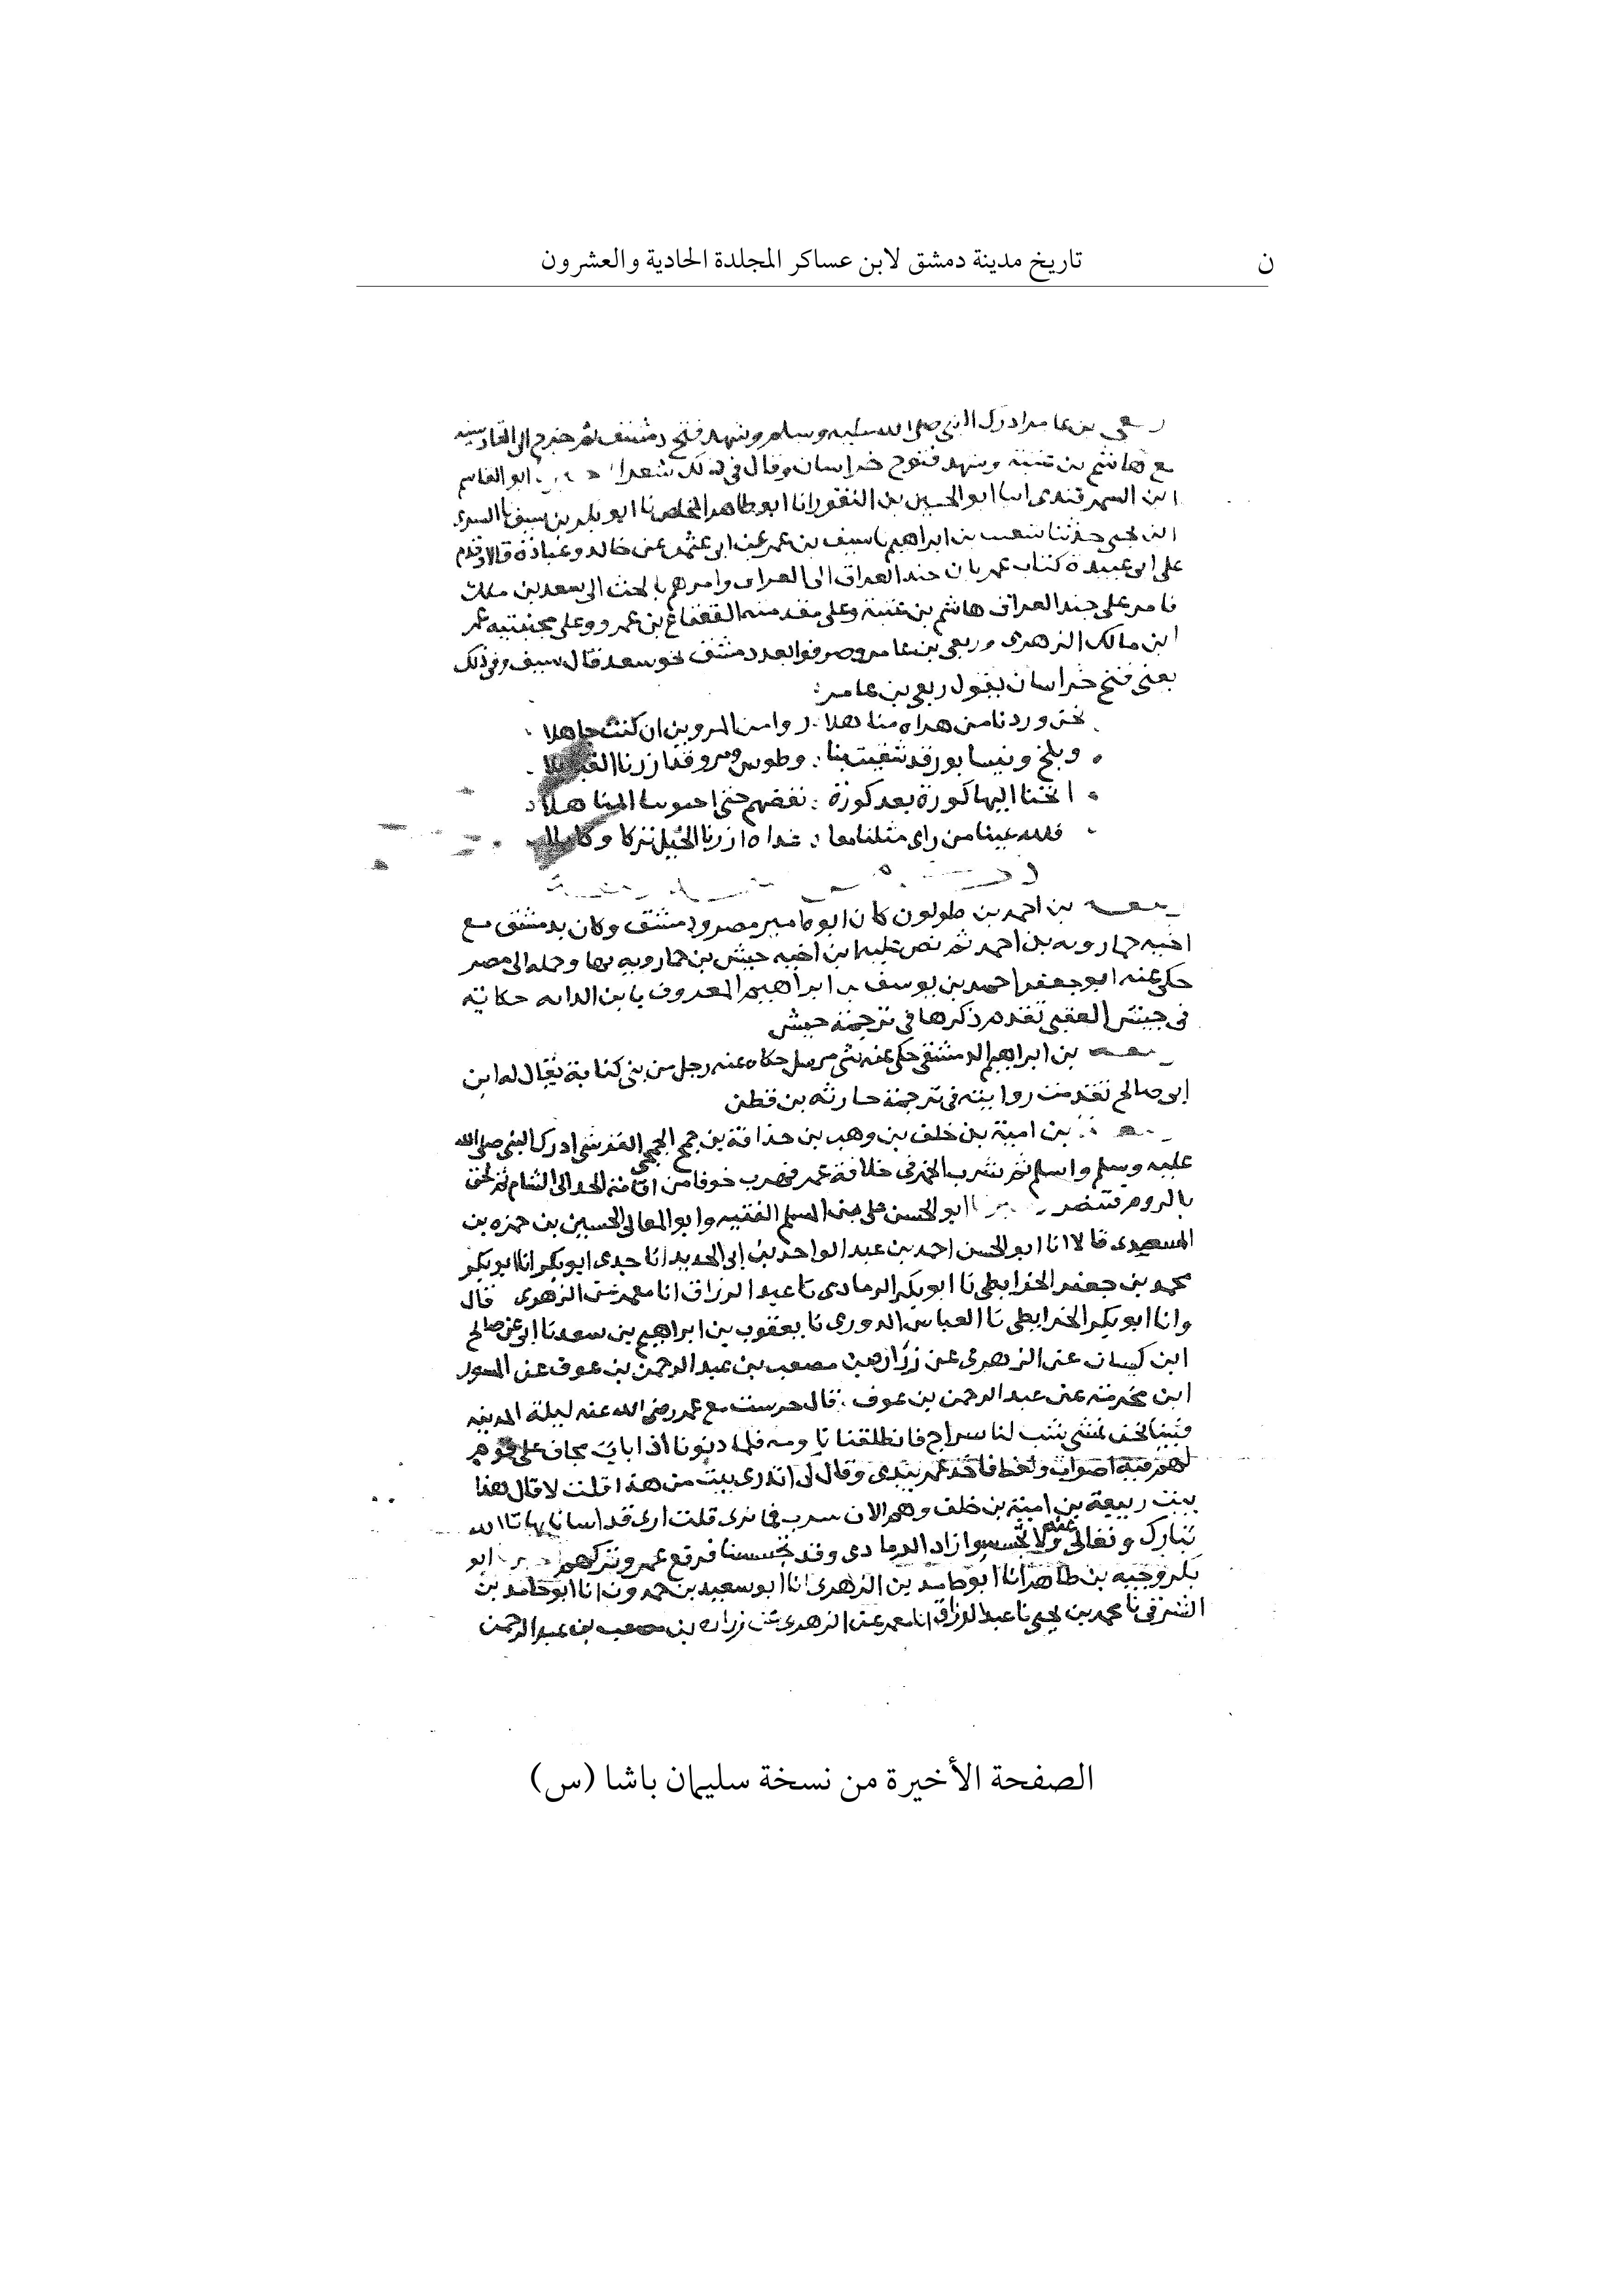 تاريخ مدينة دمشق لابن عساكر المجلدة الحادية والعشرون
ن
ربعي بن عامر ادرك النبي صلى الله عليه وسلم وشهد فتح دمشق ثم خرج الى القادسيه
مع هاشم بن عتبة وشهد فتوح خراسان وقال في ذلك شعرا ابو القاسم
ابن السمرقندي انا ابو الحسين بن النقور انا ابو طاهر المخلص نا ابو بكر بن سيف نا السري
ابن يحيى حدثنا شعيب بن ابراهيم نا سيف بن عمر عن ابي عثمن عن خالد وعبادة قالا قدم
على ابي عبيدة كتاب عمر بان جند العراق الى العراق وامرهم بالحث الى سعد بن ملك
فامر على جند العراق هاشم بن عتبة وعلى مقدمته القعقاع بن عمرو وعلى مجنبتيه عمر
ابن مالك الزهري وربعي بن عامر وصرفوا بعد دمشق نحو سعد قال سيف وفي ذلك
يعني فتح خراسان يقول ربعي بن عامر
نحن وردنا من هراه مناهلا روا من المروين ان كنت جاهلا
وبلخ ونيسابور قد شقيت بنا وطوس ومرو قد ازرنا القنابلا
انخنا اليها كورة بعد كورة نفضهم حتى احتوينا المناهلا
فلله عينا من راى مثلنا معا غداه ازرنا الخيل تركا وكابلا
ربيعه بن احمد بن طولون كان ابوه امير مصر ودمشق وكان بدمشق مع
اخيه خمارويه بن احمد ثم نص عليه ابن اخيه جيش بن خمارويه بها وحمله الى مصر
حكى عنه ابو جعفر احمد بن يوسف بن ابراهيم المعروف بابن الدايه حكايته
في جيش العقبي تقدم ذكرها في ترجمة جيش
ربيعه بن ابراهيم الدمشقي حكى عنه شي مرسل حكاه عنه رجل من بني كنانة يقال له ابن
ابي صالح تقدمت روايته في ترجمة حارثه بن قطن
ربيعه بن امية بن خلف بن وهب بن حذافة بن جمح الجمحي القرشي ادرك النبي صلى الله
عليه وسلم واسلم ثم شرب الخمر في خلافة عمر فهرب خوفا من اقامة الحد الى الشام ثم لحق
بالروم فتنصر ابو الحسن علي بن المسلم الفقيه وابو المعالي الحسين بن حمزه بن
المسعيدي قالا انا ابو الحسن احمد بن عبد الواحد بن ابي الحديد انا جدي ابو بكر انا ابو بكر
محمد بن جعفر الخرايطي نا ابو بكر الرمادي نا عبد الرزاق انا معمر عن الزهري قال
وانا ابو بكر الخرايطي نا العباس الدوري نا يعقوب بن ابراهيم بن سعد نا ابي عن صالح
ابن كيسان عن الزهري عن زرارة بن مصعب بن عبد الرحمن بن عوف عن المسور
ابن مخرمة عن عبد الرحمن بن عوف قال حرست مع عمر رضي الله عنه ليلة المدينه
فبينا نحن نمشي شب لنا سراج فانطلقنا نؤمه فلما دنونا اذا باب مجاف على قوم
لهم فيه اصوات ولغط فاخذ عمر بيدي وقال لي اتدري بيت من هذا قلت لا قال هذا
بيت ربيعة بن امية بن خلف وهم الان شرب فما ترى قلت ارى قد اتينا ما نهانا الله
تبارك وتعالى عنه ولا تجسسوا زاد الرمادي وقد تجسسنا فرجع عمر وتركهم ابو
بكر وجيه بن طاهر انا ابو حامد بن الزهري انا ابو سعيد بن حمدون انا ابو حامد بن
الشرقي نا محمد بن يحيى نا عبد الرزاق انا معمر عن الزهري عن زراره بن مصعب بن عبد الرحمن
الصفحة الأخيرة من نسخة سليمان باشا (س)